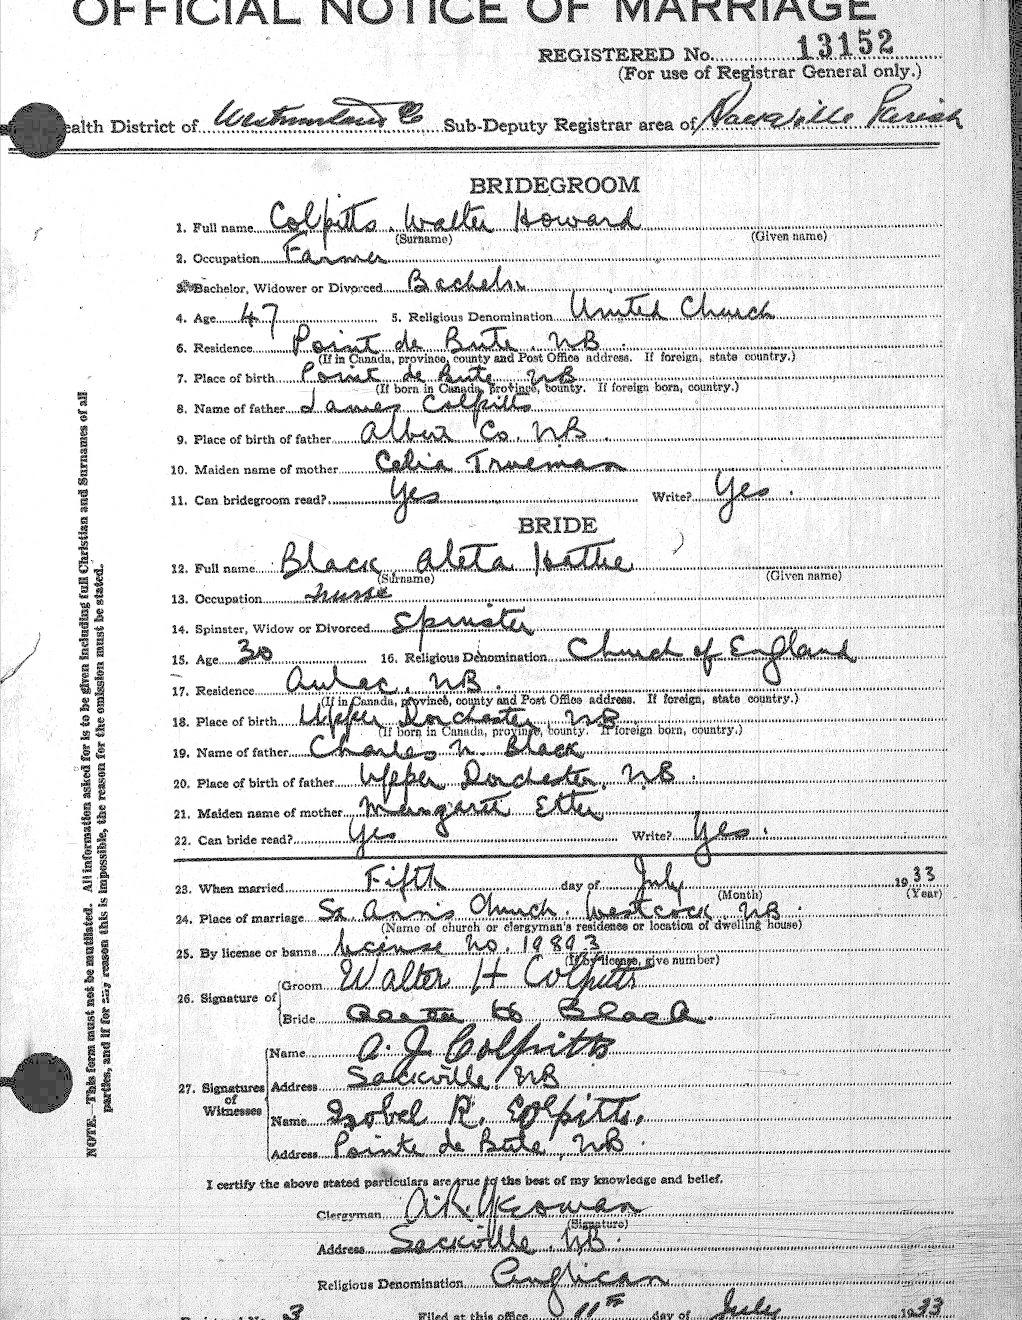 OFFICIAL NOTICE OF MARRIAGE
REGISTERED No. 13152
(For use of Registrar General only.)
ealth District of Westmorland Co Sub-Deputy Registrar area of Sackville Parish
BRIDEGROOM
1. Full name Colpitts, Walter Howard
(Surname) (Given name)
2. Occupation Farmer
3. Bachelor, Widower or Divorced Bachelor
4. Age 47 5. Religious Denomination United Church
6. Residence Point de Bute, NB.
(If in Canada, province, county and Post Office address. If foreign, state country.)
7. Place of birth Point de Bute NB
(If born in Canada, province, county. If foreign born, country.)
8. Name of father James Colpitts
9. Place of birth of father Albert Co. NB.
10. Maiden name of mother Celia Trueman
11. Can bridegroom read? Yes Write? Yes.
BRIDE
12. Full name Black Aleta Hattie
(Surname) (Given name)
13. Occupation nurse
14. Spinster, Widow or Divorced Spinster
15. Age 30 16. Religious Denomination Church of England
17. Residence Aulac, NB.
(If in Canada, province, county and Post Office address. If foreign, state country.)
18. Place of birth Upper Dorchester, NB
(If born in Canada, province, county. If foreign born, country.)
19. Name of father Charles N. Black
20. Place of birth of father Upper Dorchester, NB.
21. Maiden name of mother Margaret Etter
22. Can bride read? Yes Write? Yes.
23. When married Fifth day of July 1933
(Month) (Year)
24. Place of marriage St Ann's Church, Westcock, NB.
(Name of church or clergyman's residence or location of dwelling house)
25. By license or banns license No. 19893
(If by license, give number)
26. Signature of
Groom Walter H Colpitts
Bride Aleta H Black.
27. Signatures of Witnesses
Name A. J. Colpitts
Address Sackville NB
Name Isobel R. Colpitts,
Address Pointe de Bute, NB.
I certify the above stated particulars are true to the best of my knowledge and belief.
Clergyman A.R.
(Signature)
Address Sackville, NB.
Religious Denomination Anglican
3 Filed at this office 11th day of July 1933
NOTE.—This form must not be mutilated. All information asked for is to be given including full Christian and Surnames of all
parties, and if for any reason this is impossible, the reason for the omission must be stated.